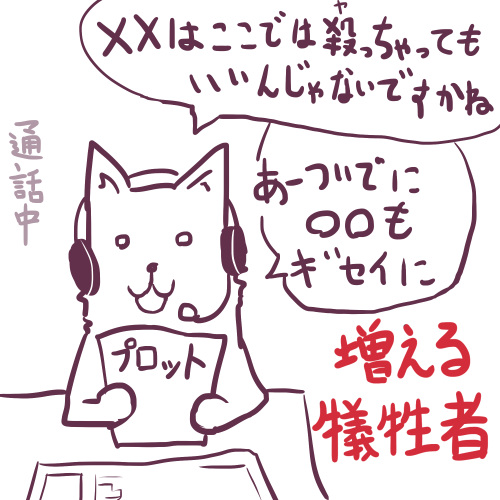 ××はここでは殺っちゃっても
ヤ
いいんじゃないですかね
通話中
あーづいでに
〇〇も
ギセイに
プロット
増える
犠牲者